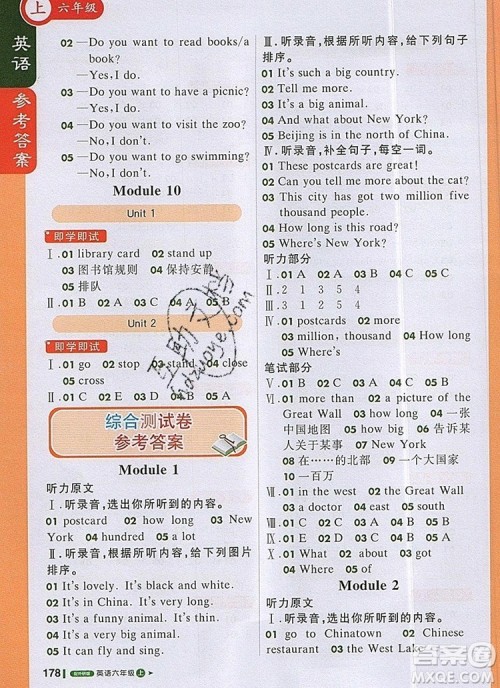 上 六年级
英语
参考答案
02 —Do you want to read books/a
book?
—Yes, I do.
03 —Do you want to have a picnic?
—Yes, I do.
04 —Do you want to visit the zoo?
—No, I don't.
05 —Do you want to go swimming?
—No, I don't.
Module 10
Unit 1
即学即试
Ⅰ. 01 library card 02 stand up
03 图书馆规则 04 保持安静
05 排队
Ⅱ. 01 B 02 C 03 A 04 A 05 B
Unit 2
即学即试
Ⅰ. 01 go 02 stop 03 stand 04 close
05 cross
Ⅱ. 01 A 02 B 03 C 04 B 05 C
综合测试卷
参考答案
Module 1
听力原文
Ⅰ. 听录音,选出你所听到的内容。
01 postcard 02 how long 03 New
York 04 hundred 05 north
Ⅱ. 听录音,根据所听内容,给下列图片
排序。
01 It's lovely. It's black and white.
02 It's in China. It's very long.
03 It's very old. It's in China too.
04 It's in New York. It's very big.
05 It can fly and sing.
178 英语六年级 上
Ⅲ. 听录音,根据所听内容,给下列句子
排序。
01 It's such a big country.
02 Tell me more.
03 It's a big animal.
04 And what about New York?
05 Beijing is in the north of China.
Ⅳ. 听录音,补全句子,每空一词。
01 These postcards are great!
02 Can you tell me more about the cat?
03 This city has got two million five
thousand people.
04 How long is this road?
05 Where's New York?
听力部分
Ⅰ. 01 A 02 B 03 B 04 A 05 C
Ⅱ. 2 1 3 5 4
Ⅲ. 1 2 3 5 4
Ⅳ. 01 postcards 02 more
03 million, thousand 04 How long
05 Where's
笔试部分
Ⅵ. 01 more than 02 a picture of the
Great Wall 03 how big 04 一张
中国地图 05 a map 06 告诉某
人关于某事 07 New York
08 在……的北部 09 一个大国家
10 一百万
Ⅶ. 01 in the west 02 the Great Wall
03 a doctor 04 east 05 south
Ⅷ. 01 A 02 C 03 A 04 C 05 A
Ⅸ. 01 A 02 C 03 B 04 B 05 B
Ⅹ. 01 What 02 How 03 big
04 And 05 Where
Module 2
听力原文
Ⅰ. 听录音,选出你所听到的内容。
01 go to Chinatown 02 Chinese
restaurant 03 dancing 04 Chinese